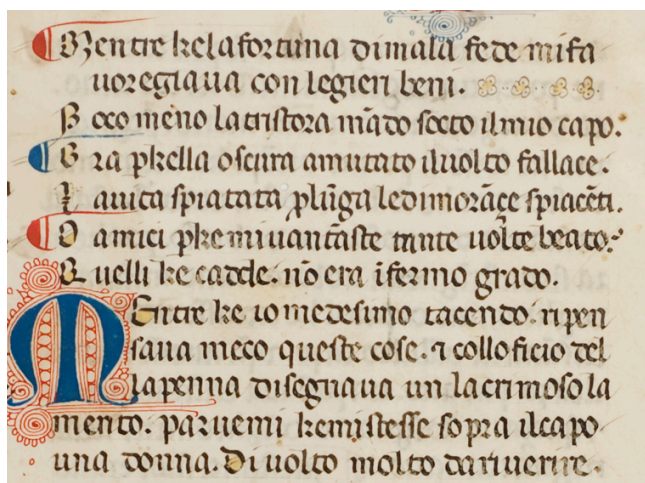 Mentre ke la fortuna di mala fede mi fa
uoregiaua con legieri beni.
Poco meno la trista ora mādo socto il mio capo.
Ora p̱kella oscura a mutato il uolto fallace.
La uita spiatata p̱lūga le dimorāçe spiacēti.
O amici p̱ke mi uantaste tante uolte beato.
Quelli ke cadde. nō era ī fermo grado.
MEntre ke io medesimo tacendo. ripen
saua meco queste cose. ⁊ collo ficio del
la penna disegnaua un lacrimoso la
mento. paruemi ke mi stesse sopra il capo
una donna. Di uolto molto da riuerire.